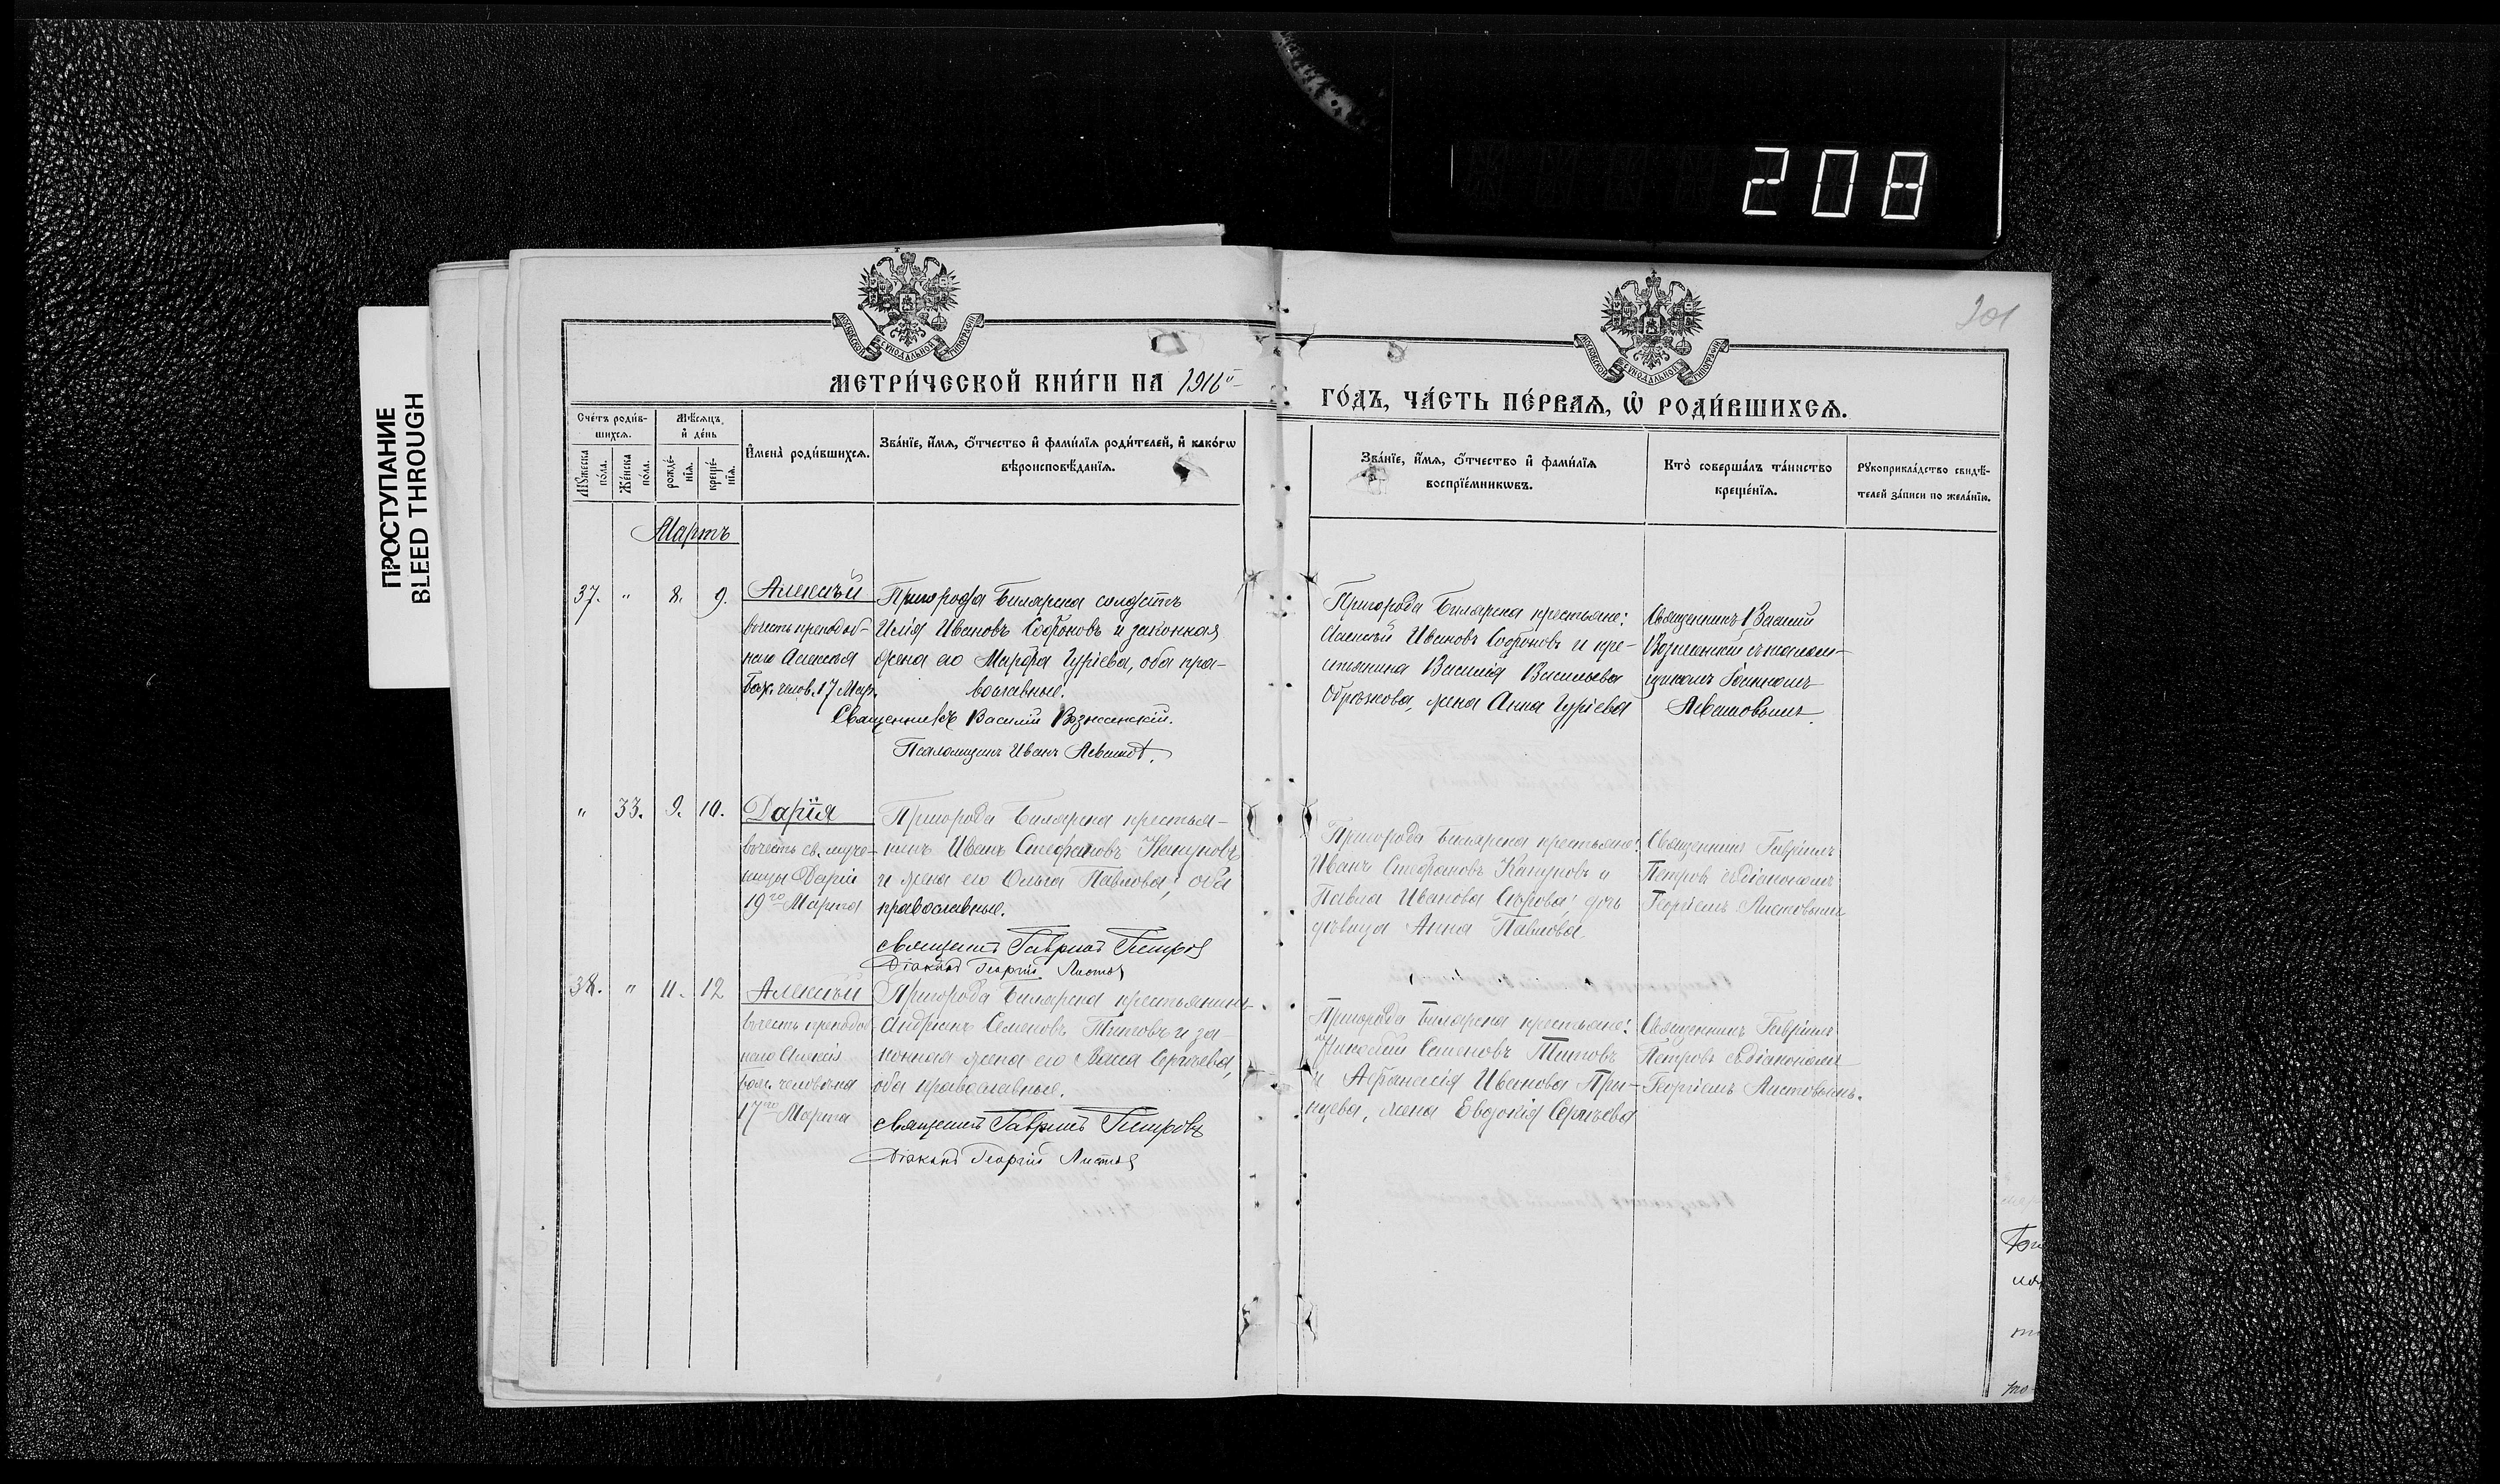 208
ПРОСТУПАНИЕ
BLEED THROUGH
201
МОСКОВСКОЙ СѴНОДАЛЬНОЙ ТИПОГРАФІИ
МОСКОВСКОЙ СѴНОДАЛЬНОЙ ТИПОГРАФІИ
МЕТРИ́ЧЕСКОЙ КНИ́ГИ НА 1916й
ГО́ДЪ, ЧА́СТЬ ПЕ́РВАѦ, Ѽ РОДИ́ВШИХСѦ.
Сче́тъ роди́в-
шихсѧ.
Мѣ́сѧцъ
и҆ де́нь
Мꙋ́жеска
по́ла.
Же́нска
по́ла.
рожде́-
нїѧ.
креще́-
нїѧ.
И҆мена̀ роди́вшихсѧ.
Зва́нїе, и҆́мѧ, ѻ҆́тчество и҆ фами́лїѧ роди́телей, и҆ како́гѡ
вѣроисповѣ́данїѧ.
Зва́нїе, и҆́мѧ, ѻ҆́тчество и҆ фами́лїѧ
воспрїе́мникѡвъ.
Кто̀ соверша́лъ та́инство
креще́нїѧ.
Рꙋкоприкла́дство свидѣ́-
телей за́писи по жела́нїю.
Мартъ
37. " 8. 9. Алексѣй
вчесть преподоб-
наго Алексія
Бож. челов. 17 Мар.
Пригорода Билярска солдатъ
Илія Ивановъ Софроновъ и законная
жена его Марѳа Гуріева, оба пра-
вославные.
Священникъ Василій Вознесенскій.
Псаломщикъ Иванъ
Пригорода Билярска крестьяне:
Алексѣй Ивановъ Софроновъ и кре-
стьянина Василія Васильева
жена Анна Гуріева
Священникъ Василій
Вознесенскій съ псалом-
щикомъ Іоанномъ
" 33. 9. 10. Дарія
вчесть св. муче-
ницы Даріи
19го Марта
Пригорода Билярска крестья-
нинъ Иванъ Стефановъ
и жена его Ольга Павлова, оба
православные.
Священникъ Гавріилъ Петровъ
Діаконъ Георгій Листовъ
Пригорода Билярска крестьяне:
Иванъ Стефановъ и
Павла Иванова дочь
дѣвица Анна Павлова
Священникъ Гавріилъ
Петровъ съ діакономъ
Георгіемъ Листовымъ
38. " 11. 12 Алексѣй
вчесть преподоб-
наго Алексія
Бож. человѣка
17го Марта
Пригорода Билярска крестьянинъ
Андреянъ Семеновъ Титовъ и за
конная жена его Сергѣева,
оба православные.
Священникъ Гавріилъ Петровъ
Діаконъ Георгій Листовъ
Пригорода Билярска крестьяне:
Николай Семеновъ Титовъ
и Аѳанасія Иванова При-
жена Евдокія Сергѣева
Священникъ Гавріилъ
Петровъ съ діакономъ
Георгіемъ Листовымъ.